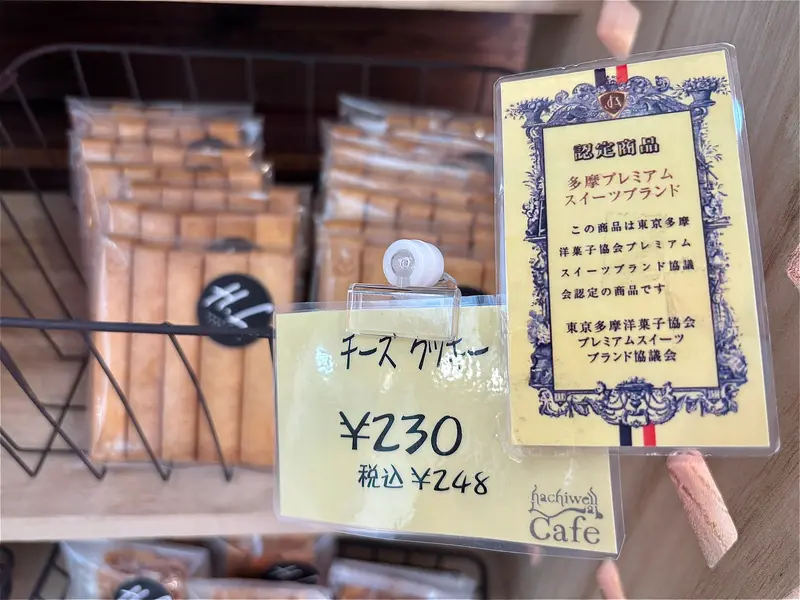 認定商品
多摩プレミアム
スイーツブランド
この商品は東京多摩
洋菓子協会プレミアム
スイーツブランド協議
会認定の商品です
東京多摩洋菓子協会
プレミアムスイーツ
ブランド協議会
チーズ クッキー
¥230
税込 ¥248
hachiwell
Cafe